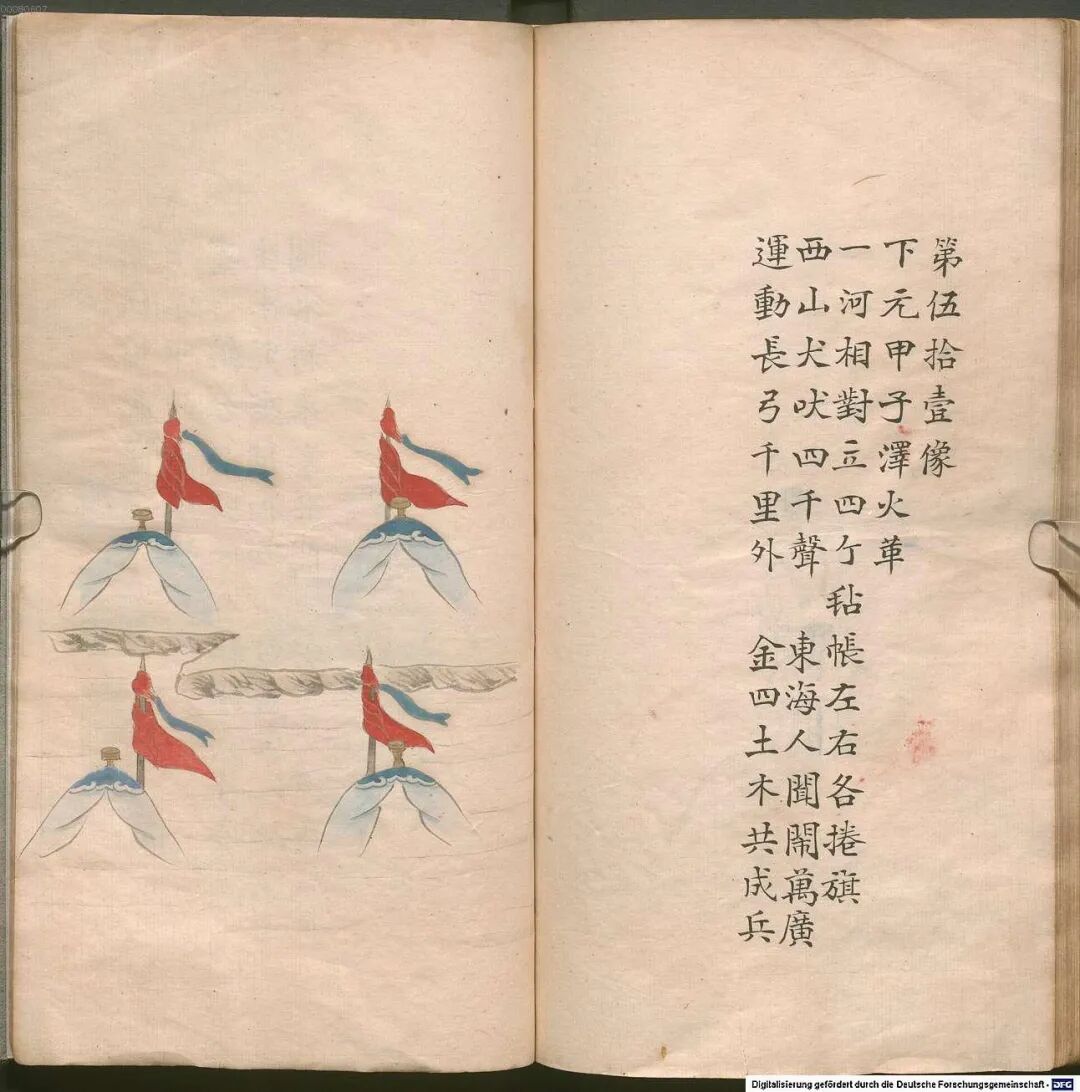 第伍拾壹像
下元甲子澤火革
一河相對立四亇毡帳左右各捲旗
西山犬吠四千聲 東海人聞鬧萬廣
運動長弓千里外 金四土木共成兵
00080607
Digitalisierung gefördert durch die Deutsche Forschungsgemeinschaft - DFG